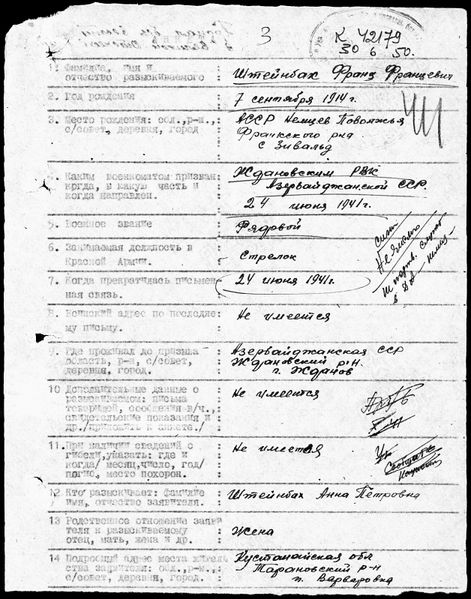 3
К 42179
30 6 50.
1. Фамилия, имя и отчество разыскиваемого : Штейнбах Франц Францевич
2. Год рождения : 7 сентября 1914 г.
3. Место рождения: обл., р-н., : АССР Немцев Поволжья
с/совет, деревня, город Франкского р-на
с Зивальд
4. Каким военкоматом призван : Ждановским РВК
когда, в какую часть и Азербайджанской ССР
когда направлен. 24 июня 1941 г.
5. Военное звание : Рядовой
6. Занимаемая должность в : Стрелок
Красной Армии.
7. Когда прекратилась письмен- : 24 июня 1941г.
ная связь.
8. Воинский адрес по последне- : Не имеется
му письму.
9. Где проживал до призыва : Азербайджанская ССР
область, р-н, с/совет, Ждановский р-н.
деревня, город. г. Жданов
10 Дополнительные данные о : Не имеется
разыскиваемом: письма
товарищей, сообщения в/ч.,
свидетельские показания и
др./приложить к анкете./
11. При наличии сведений о : Не имеется
гибели, указать: где и
когда/ месяц, число, год/
погиб, место похорон.
12 Кто разыскивает: фамилие : Штейнбах Анна Петровна
имя, отчество заявителя.
13 Родственное отношение заяви : Жена
теля к разыскиваемому
отец, мать, жена и др.
14 Подробный адрес места житель : Кустанайская обл
ства заявителя: обл., р-н., Тарановский р-н
с/совет, деревня, город. п. Варваровка